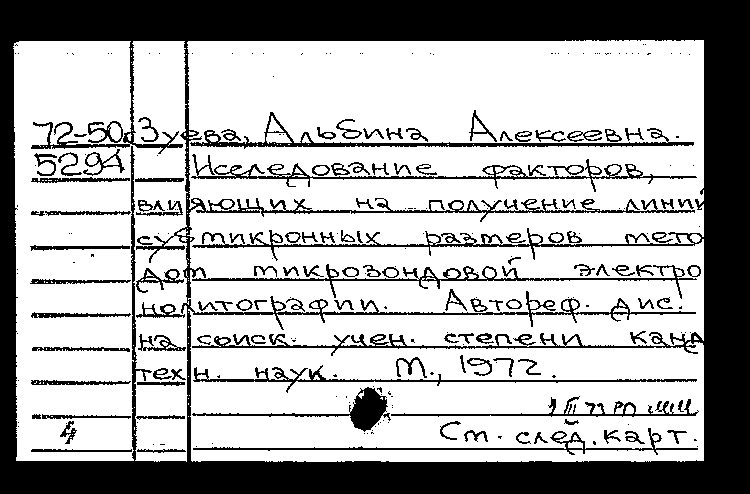 72-50 Зуева, Альбина Алексеевна.
5294 Исследование факторов,
влияющих на получение линий
субмикронных размеров мето
дом микрозондовой электро
нолитографии. Автореф. дис.
на соиск. учен. степени канд
техн. наук. М., 1972.
III 73
4 См. след. карт.